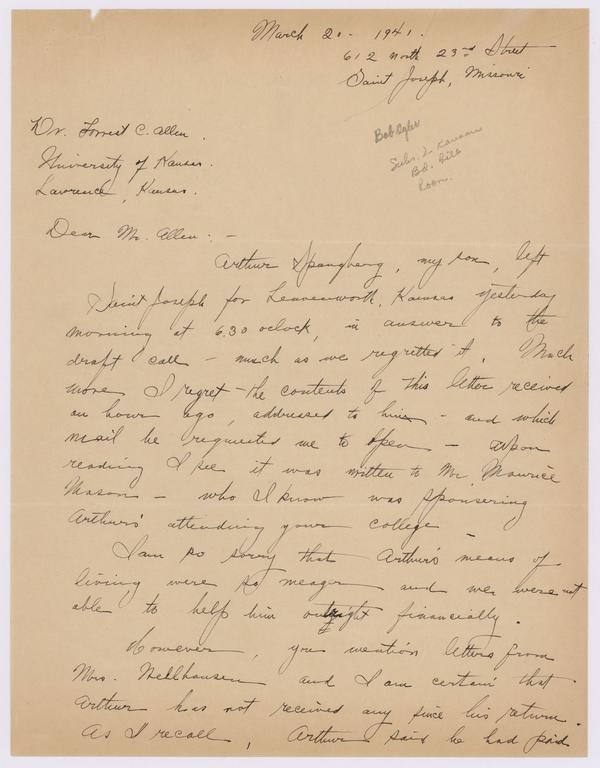 March 20 - 1941.
612 North 23rd Street
Saint Joseph, Missouri
Dr. Forrest C. Allen.
University of Kansas.
Lawrence, Kansas.
Bob
Kansas
Room.
Dear Mr. Allen: -
Arthur Spangberg, my son, left
Saint Joseph for Leavenworth, Kansas yesterday
morning at 6.30 oclock, in answer to the
draft call - much as we regretted it. Much
more I regret - the contents of this letter received
an hour ago, addressed to him - and which
mail he requested me to open - upon
reading I see it was written to Mr. Maurice
Mason - who I know was sponsering
Arthur's attending your college -
I am so sorry that Arthur's means of
living were so meager and we were not
able to help him outright financially.
However, you mention letters from
Mrs. Nellhausen and I am certain that
Arthur has not received any since his return.
As I recall, Arthur said he had paid